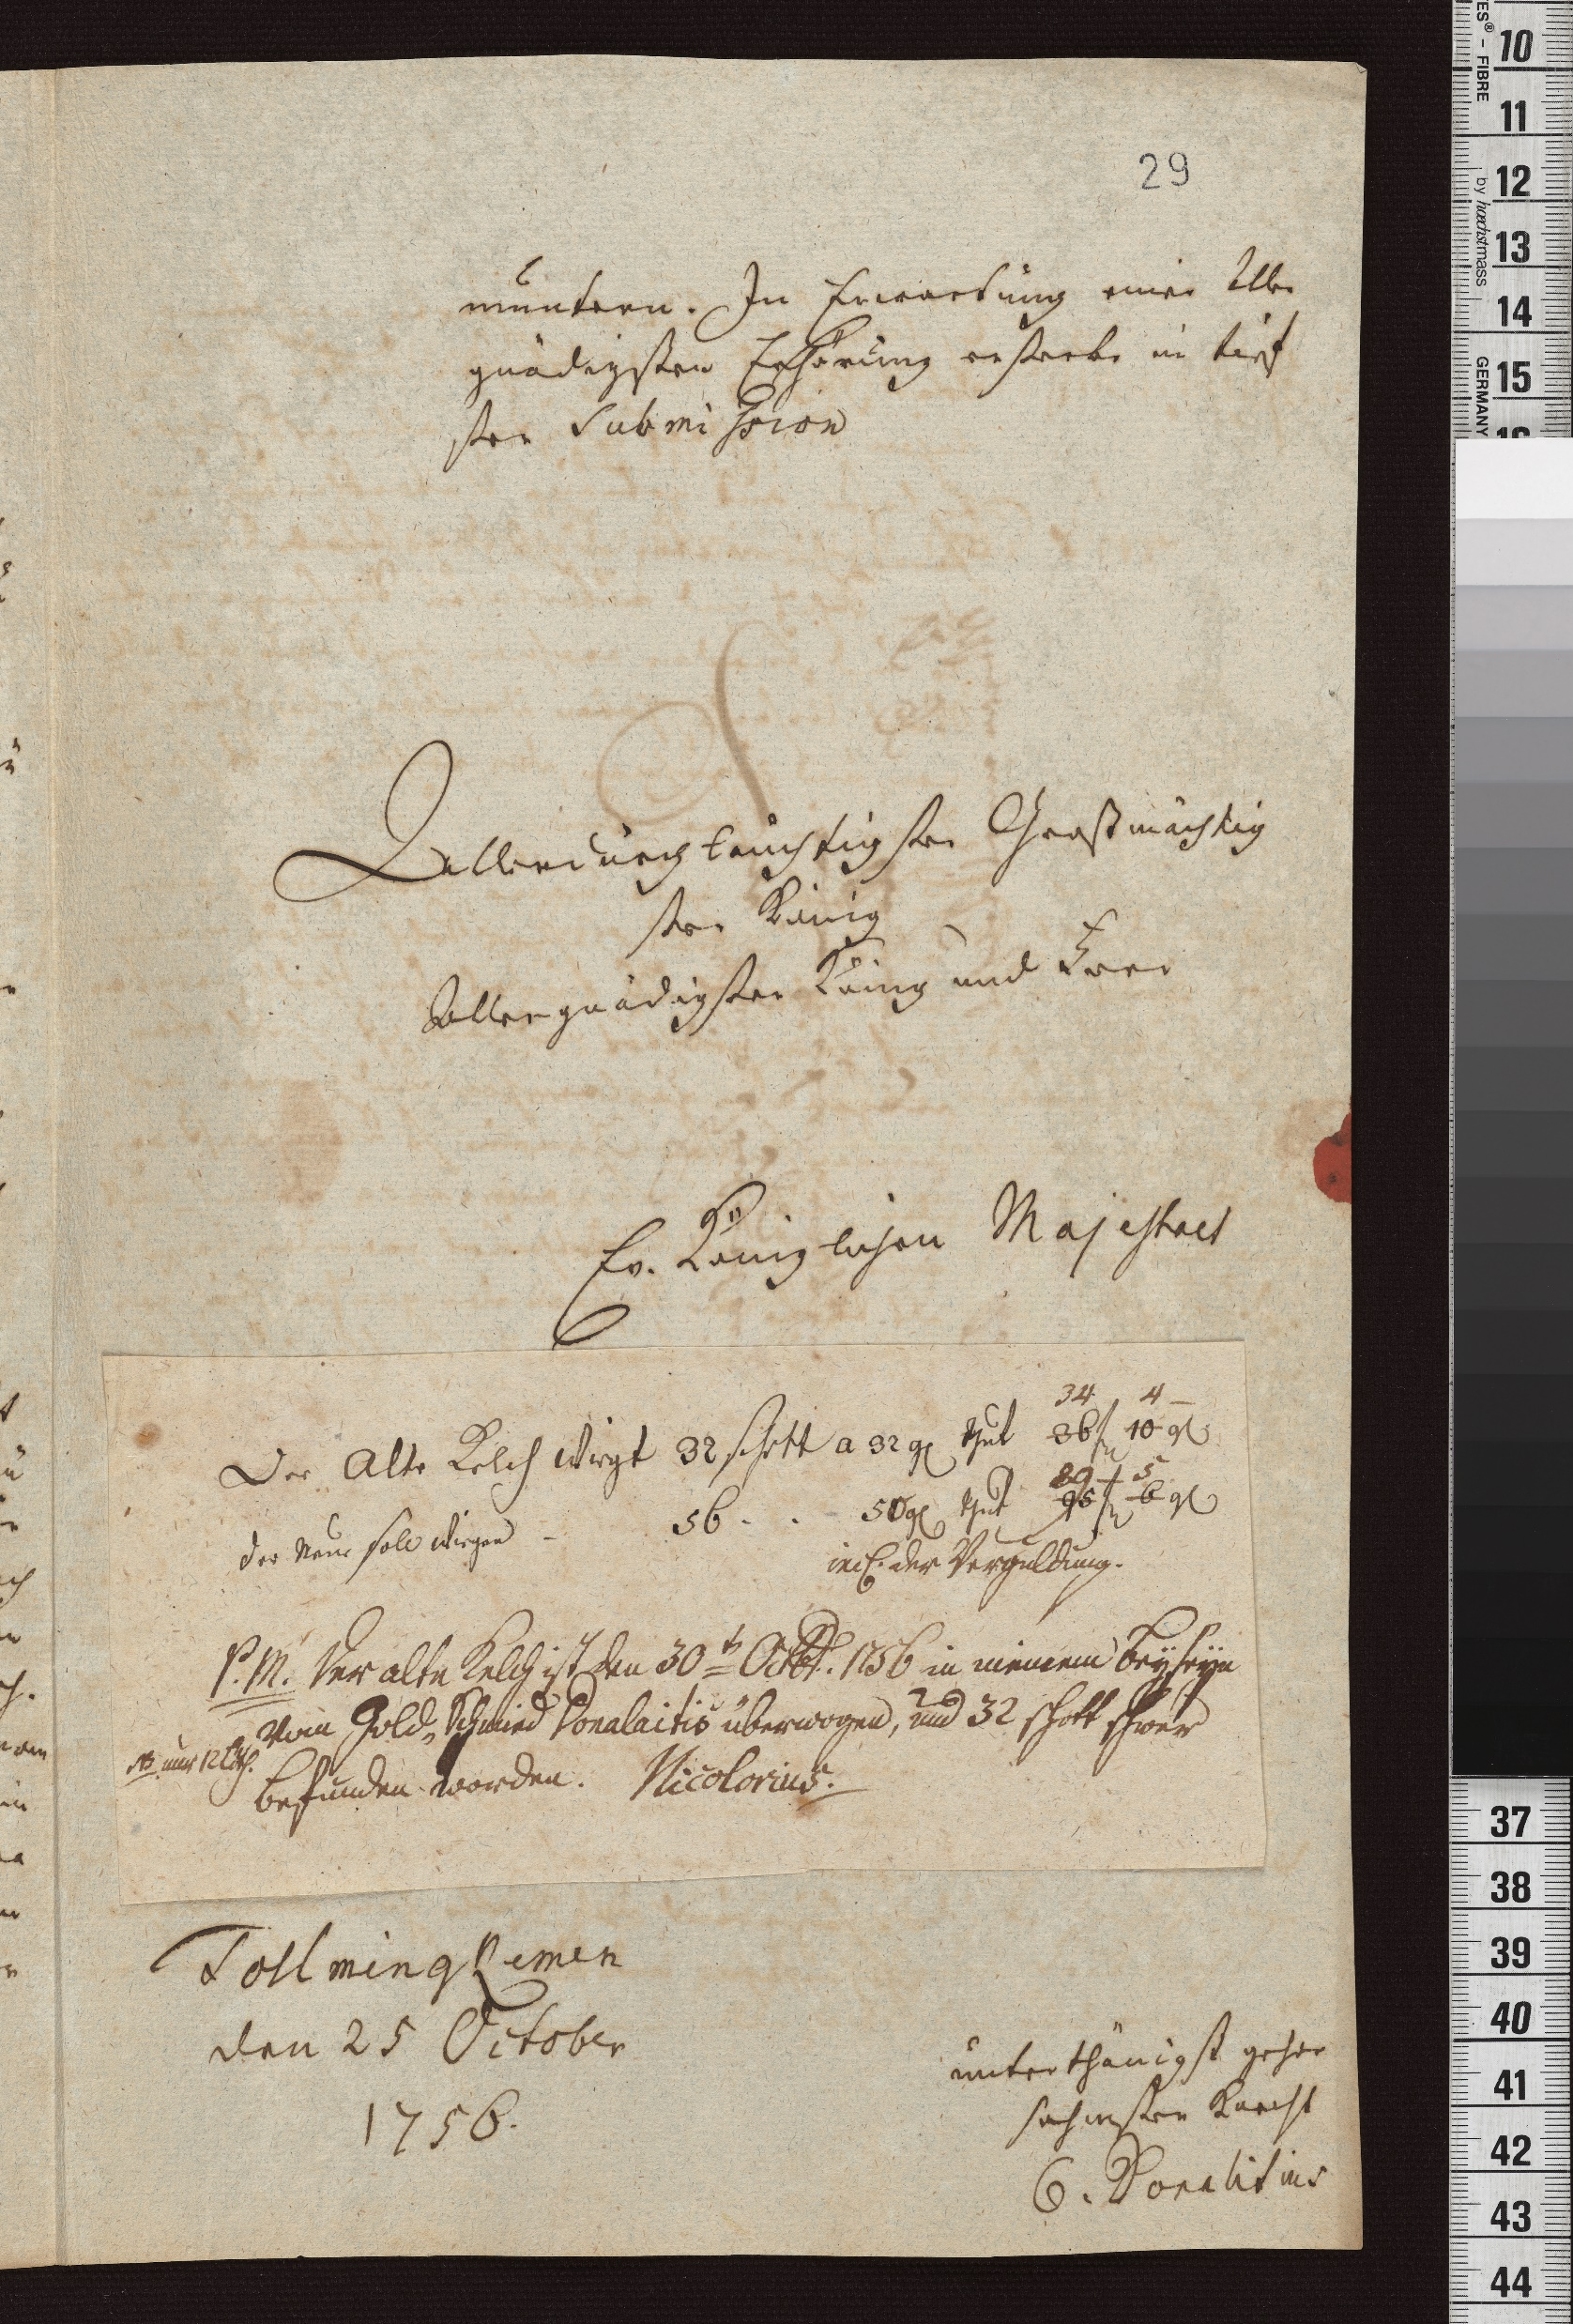 29
muntern. In Erwartung einer Aller
gnädigsten Erhörung ersterbe in tief
ster Submission
Allerdurchlauchtigster Großmächtig
ster König
Allergnädigster König und Herr
Ew. Königlichen Majestaet
34 4 –
Der Alte Kelch wiegt 32 schott a 32 gl thut 36 f 10 gl
89 + 5
der Neue soll wiegen – 56 . . 50 gl thut 95 f 6 gl
incl. der Verguldung.
P. M. Der alte Kelch ist den 30t Octbr. 1756 in meinem Beyseyn
vom Gold-Schmied Donalaitis überwogen, und 32 schott schwer
NB nur 12 Löth.
befunden worden. Nicolovius.
Tollmingkemen
den 25 October
1756.
unterthänigst gehor
sahmster Knecht
C. Donalitius